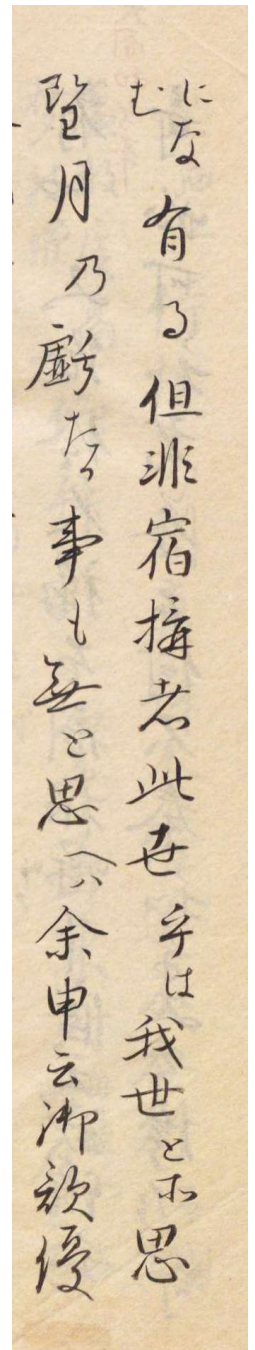 になむ有る但非宿搆者此世乎は我世と所思
望月乃虧たる事も無と思へハ余申云御歌優